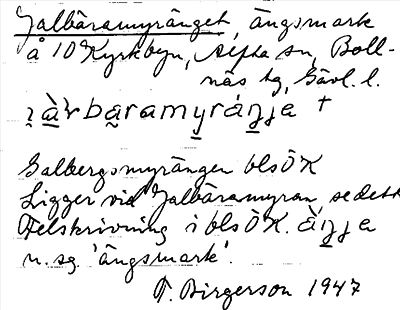 Jalbäramyränget, ängsmark
å 10 Kyrkbyn, Alfta sn, Boll-
näs tg, Gävl. l.
Galbergsmyrängen blsÖK
Ligger vid Jalbäramyran, se detta
Felskrivning i blsÖK.
n. sg. 'ängsmark'.
F. Birgerson 1947